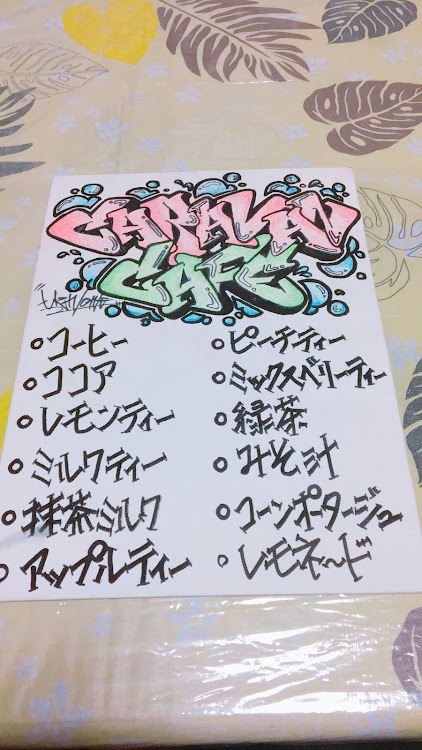 CARAVAN
CAFE
コーヒー
ココア
レモンティー
ミルクティー
抹茶ミルク
アップルティー
ピーチティー
ミックスベリーティー
緑茶
みそ汁
コーンポタージュ
レモネ〜ド